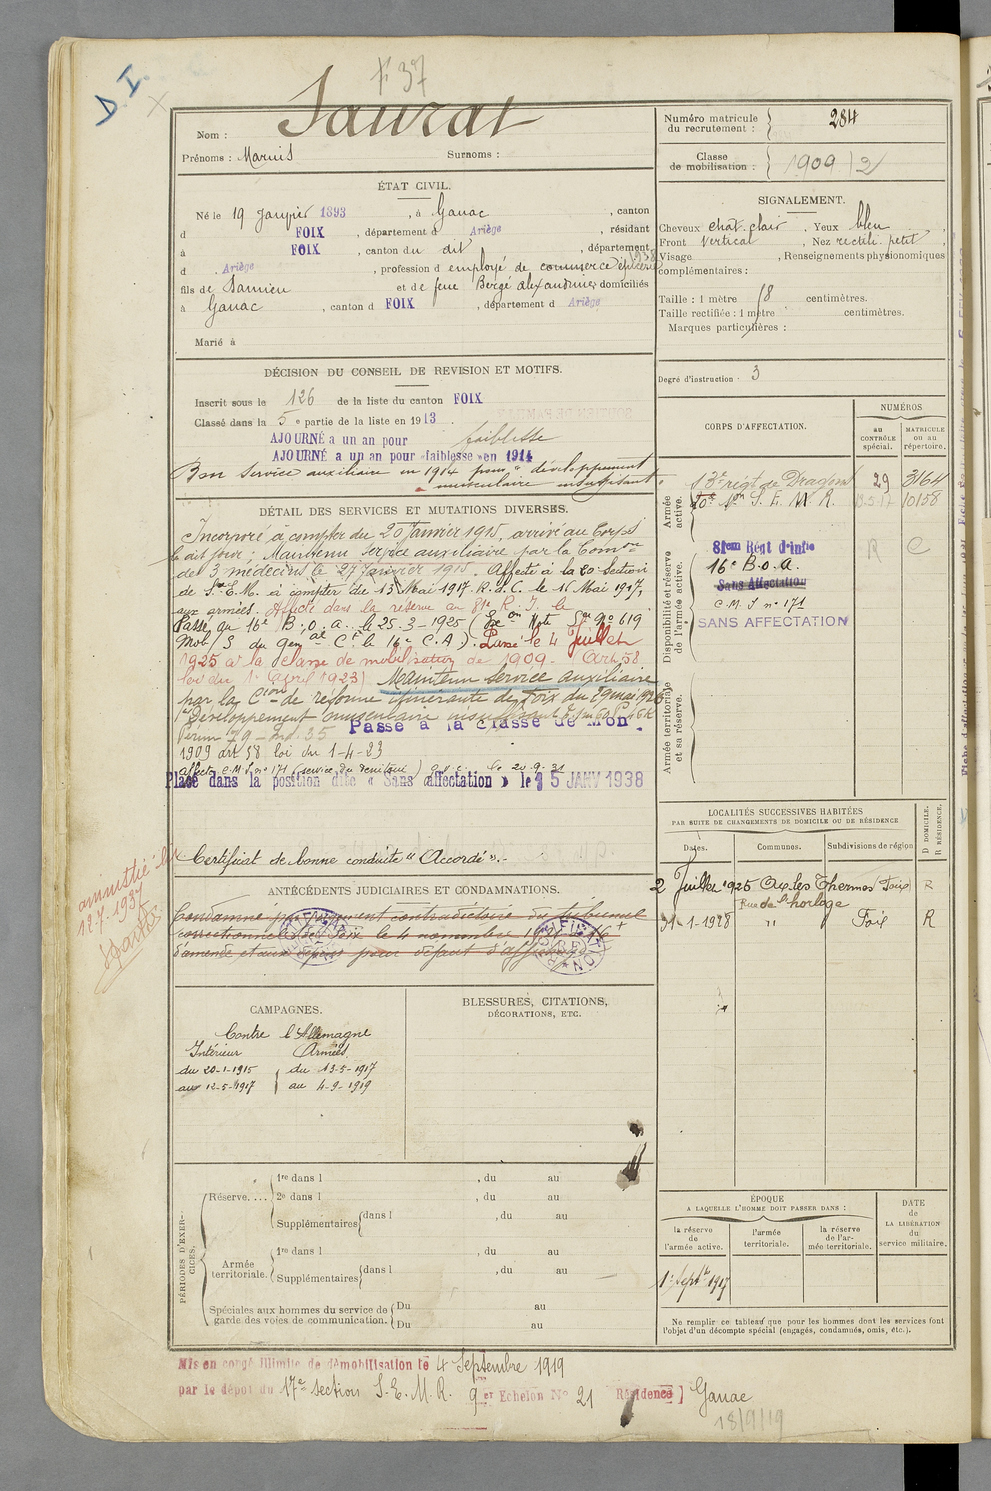 D. I.
F 37
Nom : Saurat
Prénoms : Marius Surnoms :
Numéro matricule du recrutement : 284
Classe de mobilisation : 1909 / 2
ÉTAT CIVIL.
Né le 19 Janvier 1893, à Ganac, canton
d FOIX, département d Ariège, résidant
à FOIX, canton du dit, département
d Ariège, profession d employé de commerce épicerie
fils de Damien et de feue Bergé Alexandrine domiciliés
à Ganac, canton d FOIX, département d Ariège
Marié à
SIGNALEMENT.
Cheveux chat. clair. Yeux bleu,
Front vertical, Nez rectil. petit,
Visage , Renseignements physionomiques
complémentaires :
Taille : 1 mètre 68 centimètres.
Taille rectifiée : 1 mètre centimètres.
Marques particulières :
Degré d'instruction : 3
DÉCISION DU CONSEIL DE REVISION ET MOTIFS.
Inscrit sous le n° 126 de la liste du canton FOIX
Classé dans la 5e partie de la liste en 1913.
AJOURNÉ a un an pour faiblesse
AJOURNÉ a un an pour «faiblesse» en 1914
Bon service auxiliaire en 1914 pour "développement
musculaire insuffisant".
DÉTAIL DES SERVICES ET MUTATIONS DIVERSES.
Incorporé à compter du 20 Janvier 1915, arrivé au Corps
le dit jour. Maintenu service auxiliaire par la Comon
de 3 médecins le 27 Janvier 1915. Affecté à la 20e Section
de S.E.M. à compter du 13 Mai 1917. R.d.C. le 16 Mai 1917,
aux armées. Affecté dans la réserve au 81e R.I. le
Passé au 16e B.O.A. le 25-3-1925 (Exon Note Sce No 619
Mob S du Genal Ct le 16e C.A). Passé le 4 Juillet
1925 à la classe de mobilisation de 1909. (Art 58
loi du 1er Avril 1923) Maintenu service auxiliaire
par la Cion de réforme itinérante de Foix du 29 mai 1926
1° Développement musculaire insuffisant
Périm 79
Passé à la classe de Mon.
1909 art 58 loi du 1-4-23
affecté C.M.I. n° 171 (service du territoire) le 20.9.31
Placé dans la position dite « Sans affectation » le 15 JANV 1938
Certificat de bonne conduite "Accordé".
CORPS D'AFFECTATION.
NUMÉROS
au CONTRÔLE spécial.
MATRICULE ou au répertoire.
Armée active.
13e régt de Dragons 29 3164
20e Son S.E.M.R. 10158
Disponibilité et réserve de l'armée active.
81eme Régt d'infie R C
16e B.O.A.
Sans Affectation
C.M.I n° 171
SANS AFFECTATION
Armée territoriale et sa réserve.
amnistié loi
12.7.1937
ANTÉCÉDENTS JUDICIAIRES ET CONDAMNATIONS.
Condamné par jugement contradictoire du tribunal
correctionnel de Foix le 4 novembre
d'amende et aux dépens pour défaut d'affichage
LOCALITÉS SUCCESSIVES HABITÉES
PAR SUITE DE CHANGEMENTS DE DOMICILE OU DE RÉSIDENCE
Dates. Communes. Subdivisions de région D DOMICILE. R RÉSIDENCE.
2 Juillet 1925 Ax les Thermes Foix R
Rue de l'horloge
31-1-1928 " Foix R
CAMPAGNES.
Contre l'Allemagne
Intérieur Armées
du 20-1-1915 du 13-5-1917
au 12-5-1917 au 4-9-1919
BLESSURES, CITATIONS,
DÉCORATIONS, ETC.
PÉRIODES D'EXERCICES.
Réserve....
1re dans l , du au
2e dans l , du au
Supplémentaires dans l , du au
Armée territoriale.
1re dans l , du au
Supplémentaires dans l , du au
Spéciales aux hommes du service de garde des voies de communication.
Du au
Du au
ÉPOQUE
A LAQUELLE L'HOMME DOIT PASSER DANS :
la réserve de l'armée active.
l'armée territoriale.
la réserve de l'armée territoriale.
DATE de LA LIBÉRATION du service militaire.
1er Septre 1917
Ne remplir ce tableau que pour les hommes dont les services font
l'objet d'un décompte spécial (engagés, condamnés, omis, etc.).
Mis en congé illimité de démobilisation le 4 Septembre 1919
par le dépôt du 17e section S.E.M.R. 9er Echelon No 21 Résidence] Ganac
18/9/19